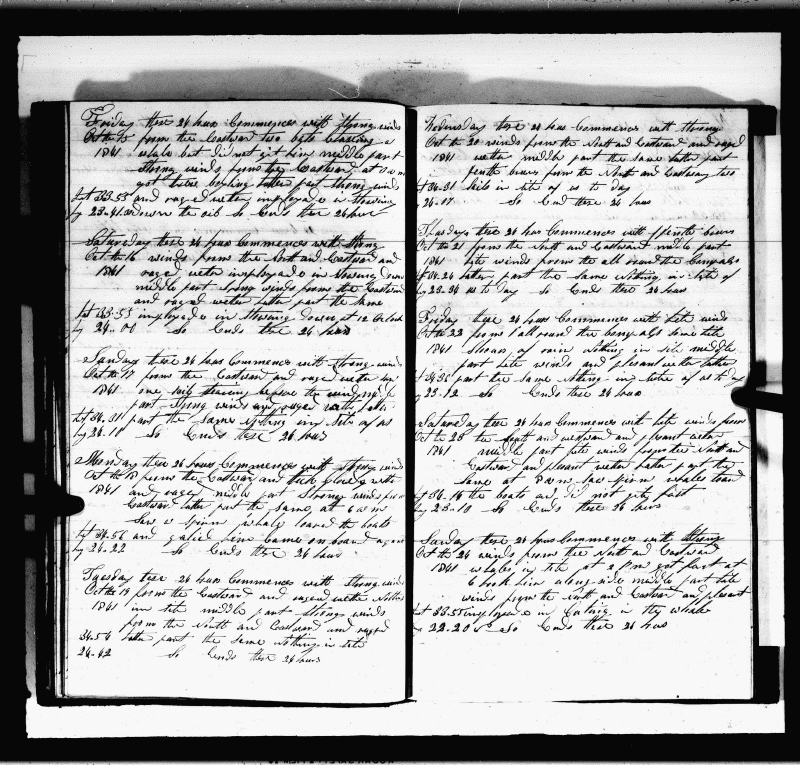 Friday these 24 hours Commences with strong winds
Oct the 15 from the Eastward two bots chasing a
1841 whale but did not git him middle part
Strong winds from the Eastward at
got bolting latter part strong winds
lat 33-53 and raged wether imployed in Stowing
lg 23-41 down the oil So Ends these 24 hours
Saturday these 24 hours Commences with Strong
Oct the 16 winds from the North and Eastward and
1841 raged wether imployed in Stowing down
middle part Strong winds from the Eastward
and raged wether latter part the same
lat 33-53 imployed in Stowing Down at 12 O Clock
lg 24-00 So Ends these 24 hours
Sunday these 24 hours Commences with strong winds
Oct the 17 from the Eastward and raged wether
1841 one Sail stearing before the wind
part Strong winds and raged wether
lat 34-31 part the Same nothing in Site of us
lg 24-11 So Ends these 24 hours
Monday these 24 hours Commences with strong winds
Oct the 18 from the Eastward and with
1841 and raged middle part Strong winds from
Eastward latter part the same at 6 am
Saw a Spirm whale loared the boats
lat 34-56 and galied him Came on board again
lg 24-22 So Ends these 24 hours
Tuesday these 24 hours Commences with Strong winds
Oct the 19 from the Eastward and raged wether Nothing
1841 in site middle part Strong winds
from the North and Eastward and raged
34-54 latter part the Same Nothing in site
24-42 So Ends these 24 hours
Wednesday these 24 hours Commences with Strong
Oct the 20 winds from the North and Eastward and raged
1841 wether middle part the Same latter part
from the North and Eastward two
lat 34-31 Sails in site of us to day
24-07 So End these 24 hours
Thursday these 24 hours Commences with
Oct the 21 from the North and Eastward middle part
1841 lite winds from the all round the Compass
lat 34-24 latter part the Same Nothing in Site of
lg 23-34 us to Day So Ends these 24 hours
Friday these 24 hours Commences with lite winds
Oct the 22 from all round the Compass Some lite
1841 Shours of rain Nothing in site middle
part lite winds and plesant wether latter
part the Same Nothing in Site of us to day
lg 23-12 So Ends these 24 hours
Saturday these 24 hours Commences with lite winds from
Oct the 23 the South and westward and plesant wether
1841 middle part lite winds from the North and
Eastward and plesant wether latter part the
Same at 8 am Saw Spirm whales loard
lat 34-16 the boats and did not git fast
lg 23-10 So Ends these 24 hours
Sunday these 24 hours Commences with Strong
Oct the 24 winds from the North and Eastward
1841 whales in site at 2 Pm got fast at
6 took him along side middle part lite
winds from the North and Eastward and plesant
lat 33-55 imployed in Cuting in the whale
lg 22-20 So Ends these 24 hours